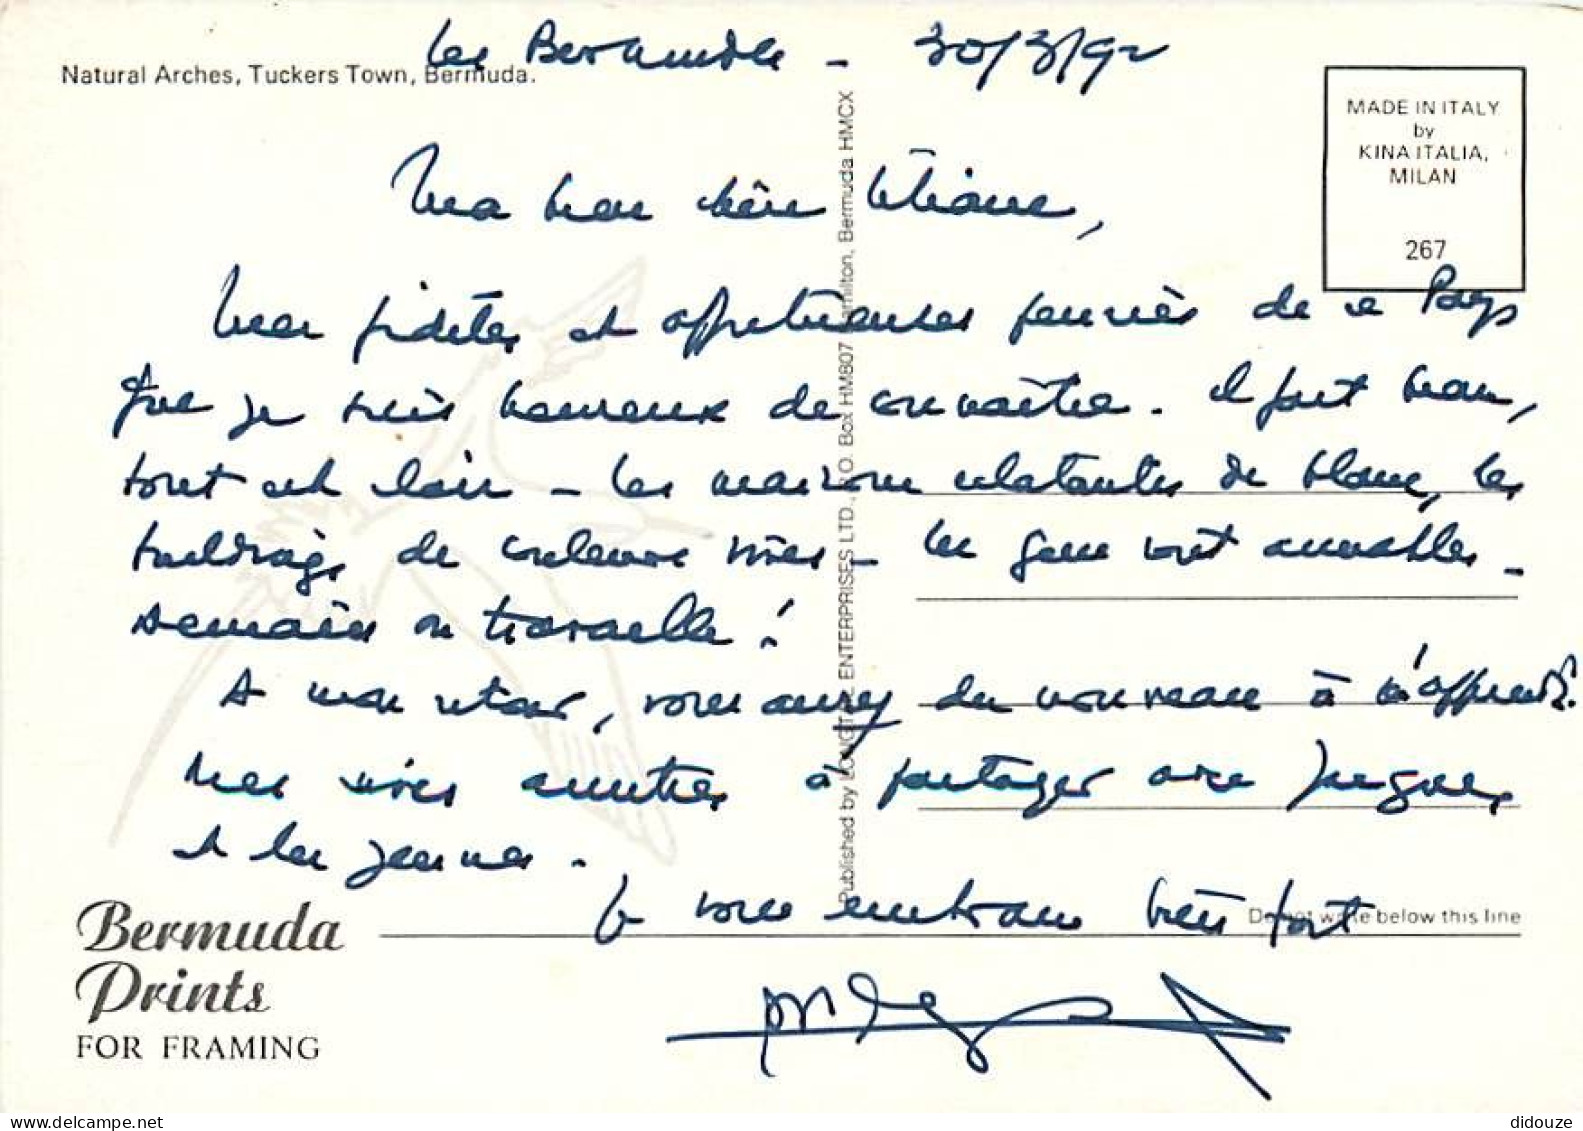 Les Bermudes - 30/3/92
Natural Arches, Tuckers Town, Bermuda.
MADE IN ITALY
by
KINA ITALIA,
MILAN
267
Ma bien chère Liliane,
Mes fidèles et affectueuses pensées de ce Pays
que je suis heureux de connaître. Il fait beau,
tout est clair - les maisons éclatantes de blanc, les
de couleurs vives - les gens sont aimables -
on travaille !
A mon retour, vous aurez du nouveau à m'apprendre.
Mes vives amitiés à partager avec Jacques
et les jeunes -
Je vous embrasse très fort
Published by LONGTAIL ENTERPRISES LTD., P.O. Box HM807 Hamilton, Bermuda HMCX
Do not write below this line
Bermuda
Prints
FOR FRAMING
didouze